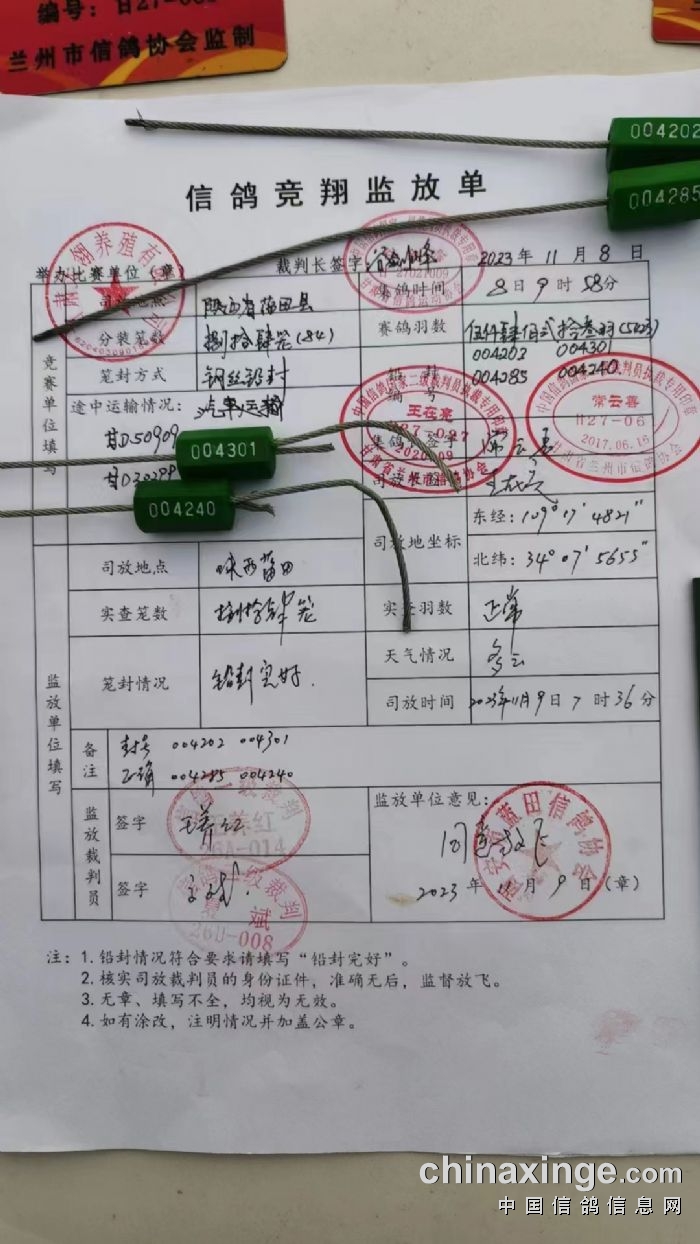 编号：甘27-0
兰州市信鸽协会监制
004202
004285
信鸽竞翔监放单
举办比赛单位（章）
裁判长签字： 2023年11月8日
司放地点 陕西省蓝田县 集鸽时间 8日9时58分
分装笼数 捌拾肆笼(84) 赛鸽羽数
竞赛单位填写
笼封方式 钢丝铅封 004202 004301
编号 004285 004240
途中运输情况： 汽车运输
甘D50909
004301
004240
司放地坐标 东经：109°17′4821″
北纬：34°07′5653″
王在亮
常云喜
甘27-06
2017.06.16
甘肃省兰州市信鸽协会
监放单位填写
司放地点 陕西蓝田
实查笼数 捌拾肆笼 实查羽数 正常
笼封情况 铅封完好. 天气情况 多云
司放时间 2023年11月9日7时36分
备注 封号 004202 004301
正确 004285 004240
监放裁判员
签字
26A-014
签字
斌
26D-008
监放单位意见：
同意放飞
2023年11月9日（章）
注：1. 铅封情况符合要求请填写“铅封完好”。
2. 核实司放裁判员的身份证件，准确无后，监督放飞。
3. 无章、填写不全，均视为无效。
4. 如有涂改，注明情况并加盖公章。
chinaxinge.com
中国信鸽信息网